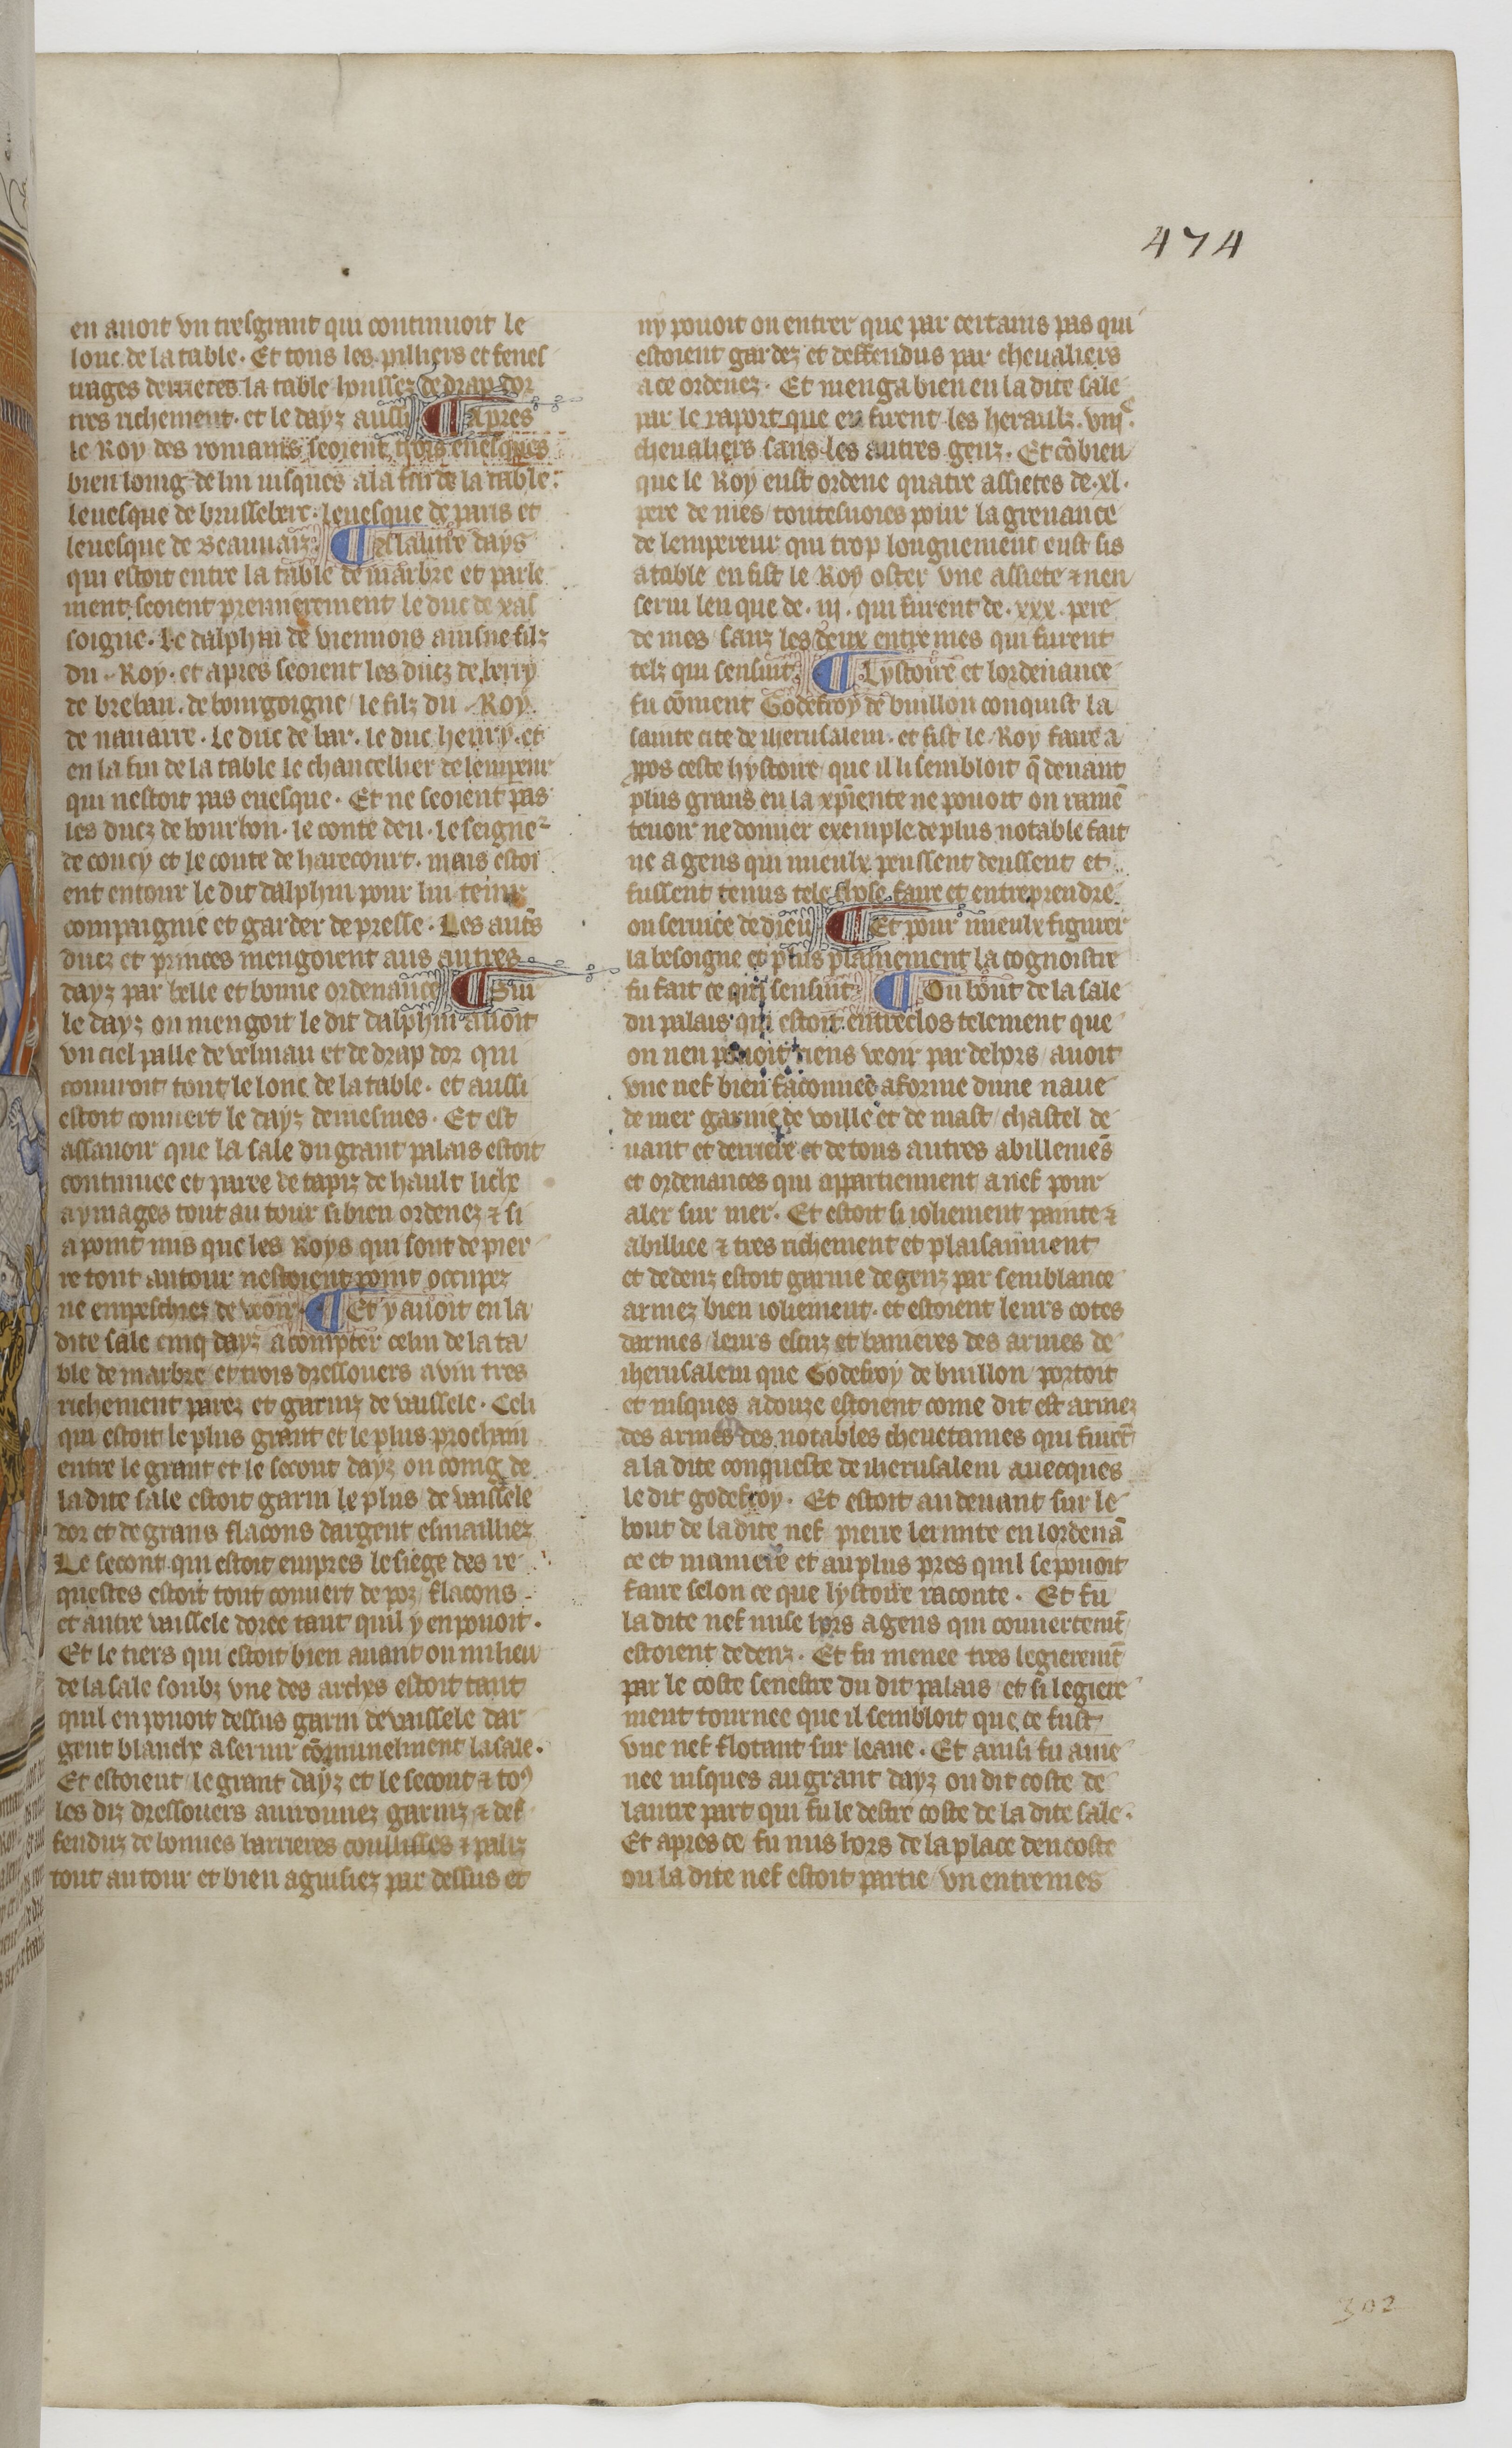 474
en auoit vn tresgrant qui continuoit le
lonc de la table. Et tous les pilliers et fenes
trages derrieres la table houssez de drap dor
tres richement. et le dayz aussi ¶ Apres
le Roy des romains seoient trois euesques
bien loing de lui iusques a la fin de la table.
leuesque de brussebere. leuesque de paris et
leuesque de Beauuaiz. ¶ A lautre days
qui estoit entre la table de marbre et parle
ment seoient premierement le duc de xas
soigne. Le dalphin de viennois ainsne filz
du Roy. et apres seoient les ducz de berry
de breban. de bourgoigne / le filz du Roy
de nauarre. Le duc de bar. le duc henry. et
en la fin de la table le chancellier de lempereur
qui nestoit pas euesque. Et ne seoient pas
les ducz de bourbon. le conte deu. le seigner
de coucy et le conte de harecourt. mais estoi
ent entour le dit dalphin pour lui tenir
compaignie et garder de presse. Les aut̄s
ducz et princes mengoient aus autres
dayz par belle et bonne ordenance ¶ Sur
le dayz ou mengoit le dit dalphin auoit
vn ciel palle de veluiau et de drap dor qui
couuroit tout le lonc de la table. et aussi
estoit couuert le dayz demesmes. Et est
assauoir que la sale du grant palais estoit
continuee et paree de tapiz de hault liche
a ymages tout au tour si bien ordenez & si
a point mis que les Roys qui sont de pier
re tout autour nestoient point occupez
ne empeschiez de veoir. ¶ Et y auoit en la
dite sale cinq dayz a compter celui de la ta
ble de marbre / et trois dressouers a vin tres
richement parez et garniz de vaissele. Celi
qui estoit le plus grant et le plus prochain
entre le grant et le secont dayz ou coing de
la dite sale estoit garni le plus / de vaissele
dor et de grans flacons dargent esmailliez
Le secont qui estoit empres le siege des re
questes estoit tout couuert de poz flacons
et autre vaissele doree tant quil y en pouoit.
Et le tiers qui estoit bien auant ou milieu
de la sale soubz vne des arches estoit tant
quil en pouoit dessus garni de vaissele dar
gent blanche a seruir cōmunelment la sale.
Et estoient / le grant dayz et le secont & tous
les diz dressouers auironnez garniz & def
fenduz de bonnes barrieres coulisses & paliz
tout au tour et bien aguisiez par dessus et
ny pouoit on entrer que par certains pas qui
estoient gardez et deffendus par cheualiers
a ce ordenez. Et menga bien en la dite sale
par le raport que en firent les heraulz. viijc.
cheualiers sans les autres genz. Et cōbien
que le Roy eust ordene quatre assietes de .xl.
pere de mes / toutesuoies pour la greuance
de lempereur qui trop longuement eust sis
a table en fist le Roy oster vne assiete & nen
serui len que de .iij. qui furent de .xxx. pere
de mes / sanz les deux entremes qui furent
telz qui sensuit. ¶ Lystoire et lordenance
fu cōment Godefroy de buillon conquist la
sainte cite de iherusalem. et fist le Roy faire a
ppos ceste hystoire / que il li sembloit q̄ deuant
plus grans en la xp̄iente ne pouoit on ramē
teuoir ne donner exemple de plus notable fait
ne a gens qui mieulx peussent deussent et
fussent tenus tele chose faire et entreprendre
ou seruice de dieu ¶ Et pour mieulx figurer
la besoigne et plus plainement la cognoistre
fu fait ce qui sensuit. ¶ Ou bout de la sale
du palais qui estoit entreclos telement que
on nen pouoit riens veoir par dehors / auoit
vne nef bien faconnee a forme dune naue
de mer garnie de voille et de mast / chastel de
uant et derriere et de tous autres abillemēs
et ordenances qui appartiennent a nef pour
aler sur mer. Et estoit si ioliement painte &
abilliee & tres richement et plaisamment
et dedenz estoit garnie de genz par semblance
armez bien ioliement. et estoient leurs cotes
darmes / leurs escuz et banieres des armes de
iherusalem que Godefroy de buillon / portoit
et iusques a douze estoient come dit est armez
des armes des notables cheuetaines qui furēt
a la dite conqueste de iherusalem auecques
le dit godefroy. Et estoit au deuant sur le
bout de la dite nef pierre lermite en lordenā
ce et maniere et au plus pres quil se pouoit
faire selon ce que lystoire raconte. Et fu
la dite nef mise hors a gens qui couuertemēt
estoient dedenz. Et fu menee tres legieremēt
par le coste senestre du dit palais / et si legiere
ment tournee que il sembloit que ce fust
vne nef flotant sur leaue. Et ainsi fu ame
nee iusques au grant dayz ou dit coste de
lautre part qui fu le destre coste de la dite sale.
Et apres ce fu mis hors de la place dencoste
ou la dite nef estoit partie / vn entremes
302